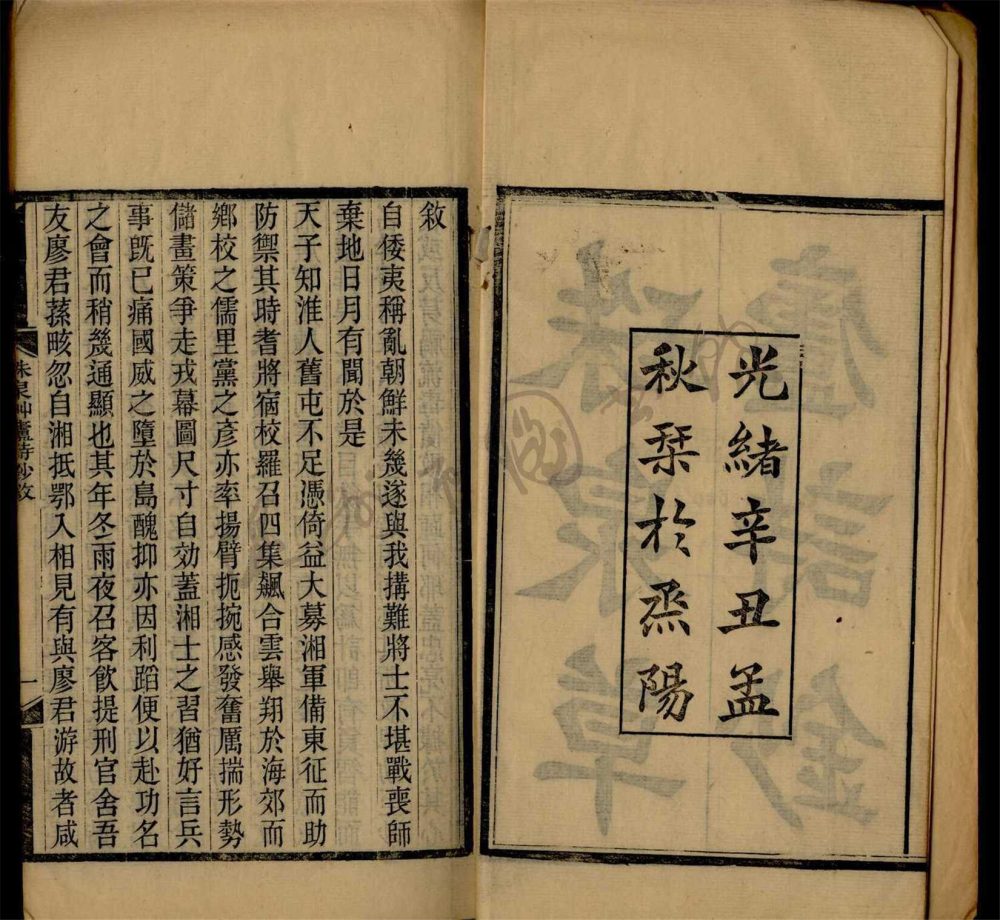 光緒辛丑孟
秋栞於烝陽
敘
自倭夷稱亂朝鮮未幾遂與我搆難將士不堪戰喪師
棄地日月有聞於是
天子知淮人舊屯不足憑倚益大募湘軍備東征而助
防禦其時耆將宿校羅召四集飆合雲舉翔於海郊而
鄉校之儒里黨之彥亦率揚臂扼捥感發奮厲揣形勢
儲畫策爭走戎幕圖尺寸自効蓋湘士之習猶好言兵
事旣已痛國威之墮於島醜抑亦因利蹈便以赴功名
之會而稍幾通顯也其年冬雨夜召客飲提刑官舍吾
友廖君蓀畡忽自湘抵鄂入相見有與廖君游故者咸
珠泉艸廬詩鈔敘
一